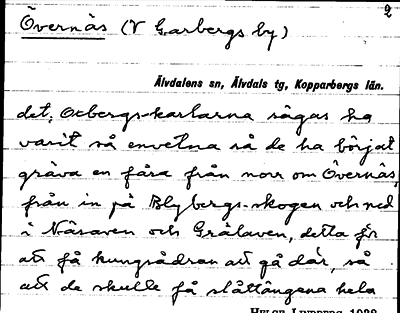 2
Övernäs (V Garbergs by)
Älvdalens sn, Älvdals tg, Kopparbergs län.
det; Oxbergs-karlarna sägas ha
varit så envetna så de ha börjat
gräva en fåra från norr om Övernäs,
från in på Blybergs-skogen och ned
i Näsaven och Grålaven, detta för
att få kungsådran att gå där, så
att de skulle få slåttängena hela